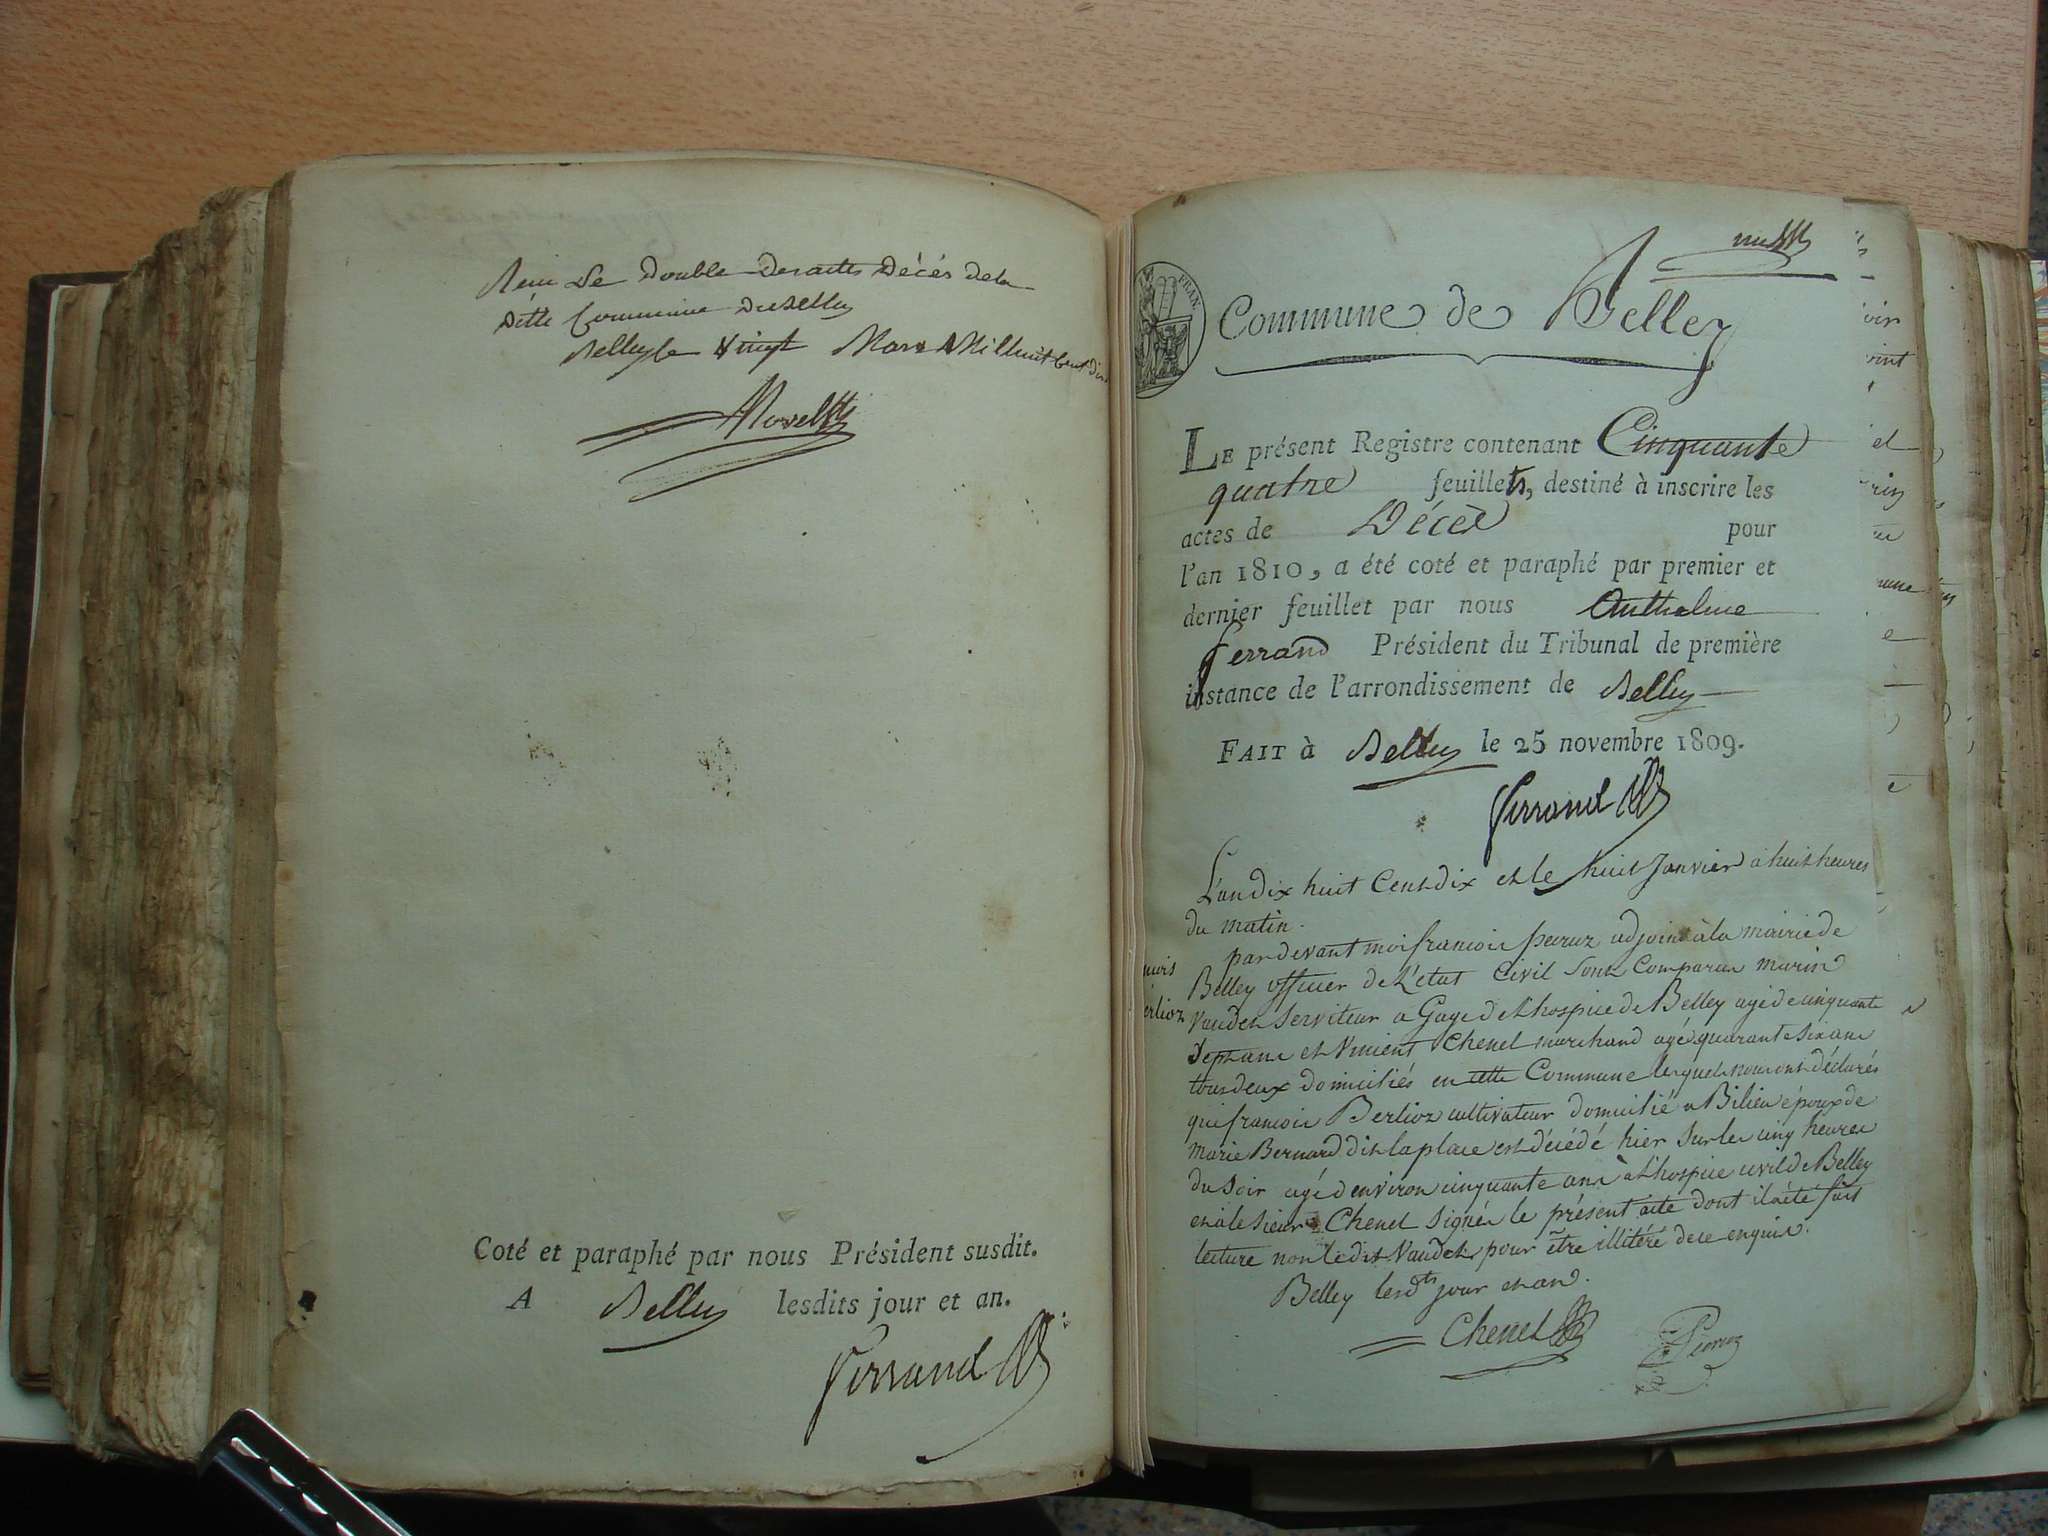 Le Double des actes Décés de la
Ditte Commune de Belley
Belley le vingt Mars Mil huit Cent dix
Coté et paraphé par nous Président susdit.
A Belley lesdits jour et an.
Ferrand
FRAN
Commune de Belley
LE présent Registre contenant Cinquante
quatre feuillets, destiné à inscrire les
actes de Décès pour
l'an 1810, a été coté et paraphé par premier et
dernier feuillet par nous Anthelme
Ferrand Président du Tribunal de première
instance de l'arrondissement de Belley
FAIT à Belley le 25 novembre 1809.
Ferrand
L'an dix huit Cent dix et le huit Janvier à huit heures
du matin.
par devant moi francois peruz adjoint à la mairie de
Belley officer de L'état Civil sont Comparus marin
Vaudet Serviteur a Gage de L'hospice de Belley agé de cinquante
Sept ans et Vincent Chenet marchand agé quarante Six ans
tous deux domiciliés en cette Commune lesquels nous ont déclarés
que francois Berlioz cultivateur domicilié a Bilieu époux de
marie Bernard dit laplace est décédé hier Sur les cinq heures
du Soir agé d'environ cinquante ans à L'hospice civil de Belley
et à le Sieur Chenet Signés le présent acte dont il a été fait
lecture non ledit Vaudet pour être illitéré de ce enquis.
Belley lesdts jour et an.
Chenet
erlioz